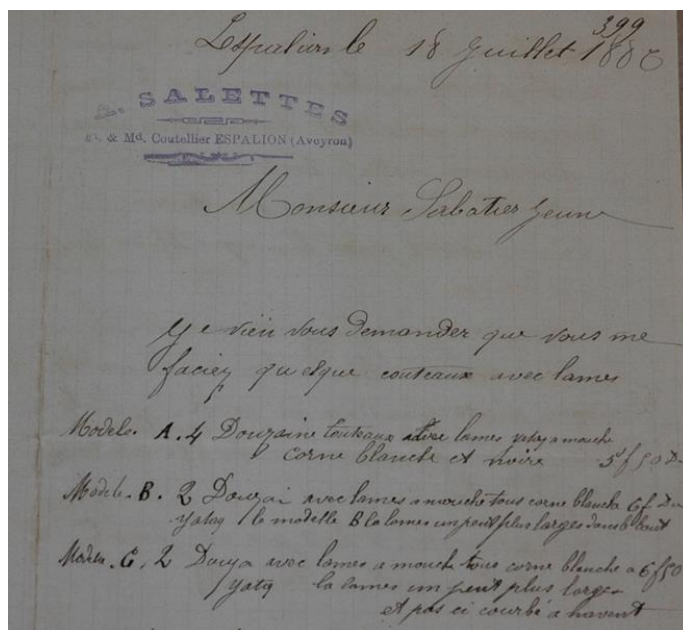 399
Espalion le 18 Juillet 188
SALETTES
& Md. Coutellier ESPALION (Aveyron)
Monsieur Sabatier Jeune
Je vien vous demander que vous me
faciez quelque couteaux avec lames
Modele. A. 4 Douzaine couteaux lames yatag a mouche
corne blanche et noire 5f50 D
Modele. B. 2 Douzai avec lames a mouche tous corne blanche 6f Du
yatag le modelle B la lames un peut plus larges dans le bout
Modele. C. 2 Douza avec lames a mouche tous corne blanche a 6f50
yatag la lames un peut plus large
et pas ci courbé a havent